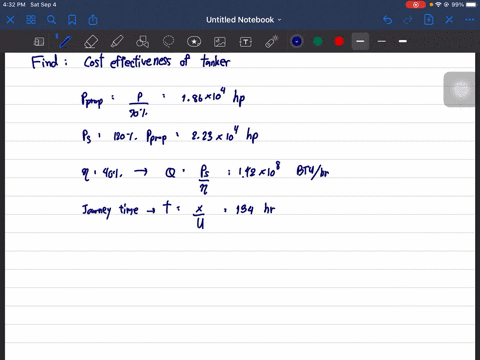 4:32 PM Sat Sep 4
99%
Untitled Notebook
Find : Cost effectiveness of tanker
Pprop : P / 70% : 1.86 × 10⁴ hp
Ps : 120% Pprop : 2.23 × 10⁴ hp
η : 40% → Q : Ps / η : 1.42 × 10⁸ BTU/hr
Journey time → t : x / U : 134 hr